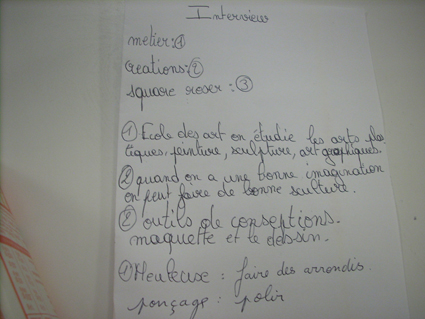 Interview
metier: ①
creations: ②
square roser : ③
① Ecole des art on étudie les arts plas
tiques, peinture, sculpture, art graphiques.
② quand on a une bonne imagination
on peut faire de bonne sculture.
② outils de conseptions.
maquette et le dessin.
① Meuleuse : faire des arrondis.
ponçage : polir